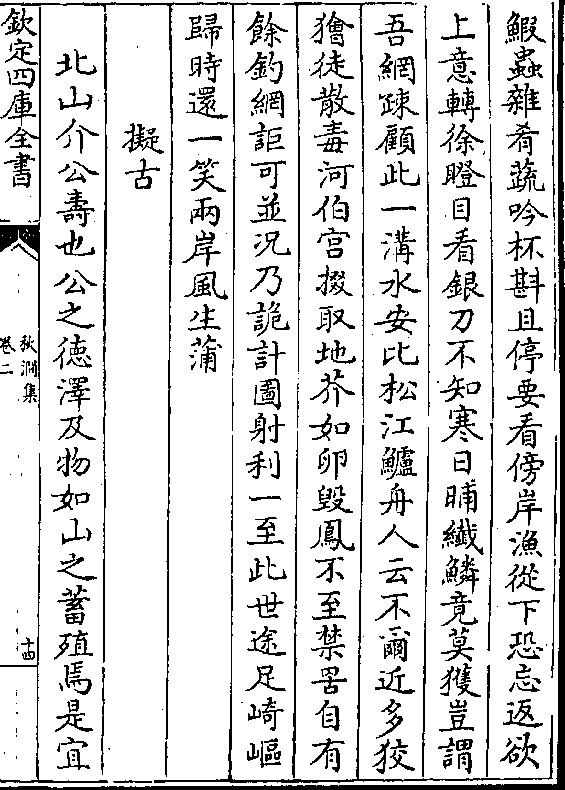 鰕蟲雜肴蔬吟杯斟且停要看傍岸漁從下恐忘返欲
上意轉徐瞪目看銀刀不知寒日晡纎鱗竟莫獲豈謂
吾網疎顧此一溝水安比松江鱸舟人云不爾近多狡
獪徒散毒河伯宫掇取地芥如卵毁鳳不至禁罟自有
餘釣網詎可並况乃詭計圖射利一至此世途足崎嶇
歸時還一笑兩岸風生蒲
擬古
北山介公壽也公之徳澤及物如山之蓄殖焉是宜
欽定四庫全書
秋澗集
卷二
十四